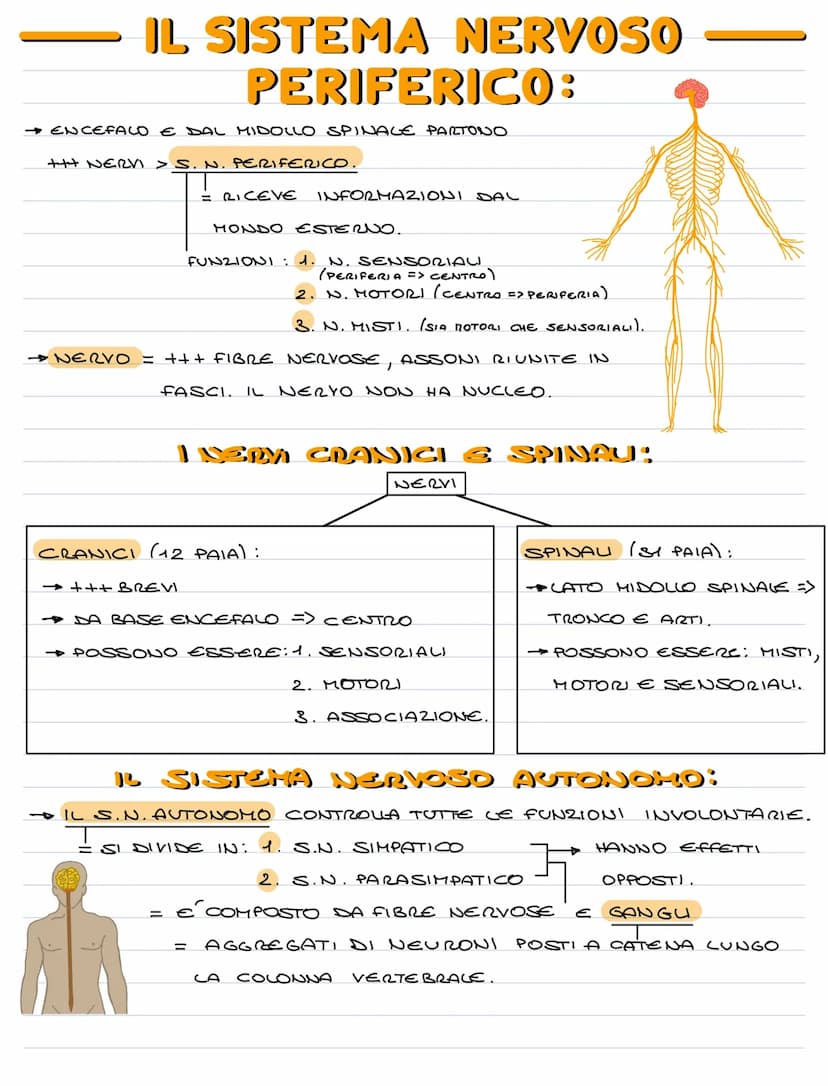 IL SISTEMA NERVOSO
PERIFERICO:
→ ENCEFALO E DAL MIDOLLO SPINALE PARTONO
+++ NERVI > S. N. PERIFERICO.
= RICEVE INFORMAZIONI DAL
MONDO ESTERNO.
FUNZIONI: 1. N. SENSORIALI
(PERIFERIA => CENTRO)
2. N. MOTORI (CENTRO => PERIFERIA)
3. N. MISTI. (SIA MOTORI CHE SENSORIALI).
→ NERVO = +++ FIBRE NERVOSE, ASSONI RIUNITE IN
FASCI. IL NERVO NON HA NUCLEO.
I NERVI CRANICI E SPINALI:
NERVI
CRANICI (12 PAIA):
→ +++ BREVI
→ DA BASE ENCEFALO => CENTRO
→ POSSONO ESSERE: 1. SENSORIALI
2. MOTORI
3. ASSOCIAZIONE.
SPINALI (31 PAIA):
→ LATO MIDOLLO SPINALE =>
TRONCO E ARTI.
→ POSSONO ESSERE: MISTI,
MOTORI E SENSORIALI.
IL SISTEMA NERVOSO AUTONOMO:
→ IL S.N. AUTONOMO CONTROLLA TUTTE LE FUNZIONI INVOLONTARIE.
= SI DIVIDE IN: 1. S.N. SIMPATICO → HANNO EFFETTI
2. S.N. PARASIMPATICO OPPOSTI.
= E' COMPOSTO DA FIBRE NERVOSE E GANGLI
= AGGREGATI DI NEURONI POSTI A CATENA LUNGO
LA COLONNA VERTEBRALE.